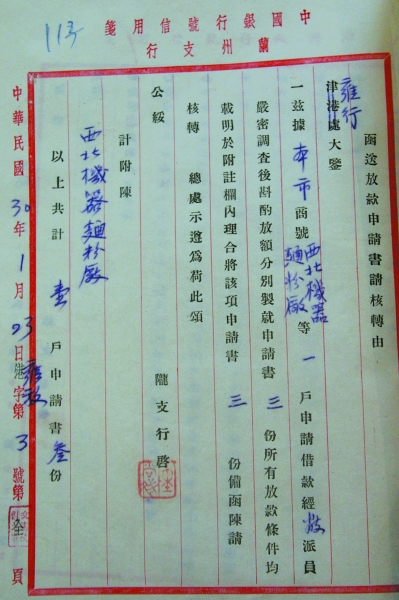 113
中國銀行號信用箋
蘭州支行
函送放款申請書請核轉由
雍行
津港處大鑒
一茲據本市商號西北機器麵粉廠等一戶申請借款經敝派員
嚴密調查後斟酌放額分別製就申請書三份所有放款條件均
載明於附註欄內理合將該項申請書三份備函陳請
核轉　總處示遵為荷此頌
公綏
隴支行啓
計附陳
西北機器麵粉廠
以上共計壹戶申請書叁份
中華民國30年1月23日港字第3號第全頁
雍放